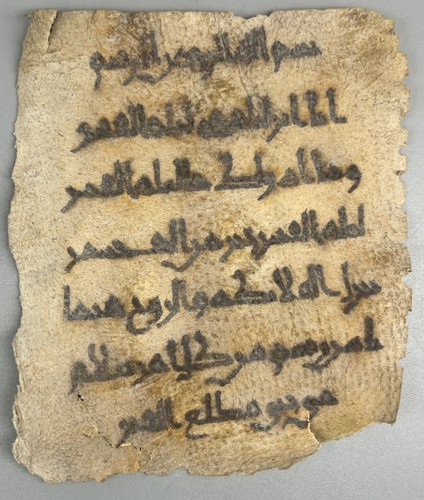 بسم الله الرحمن الرحيم
انا انزلناه في ليلة القدر
وما ادراك ما ليلة القدر
ليلة القدر خير من الف شهر
تنزل الملائكة والروح فيها
باذن ربهم من كل امر سلام
هي حتى مطلع الفجر